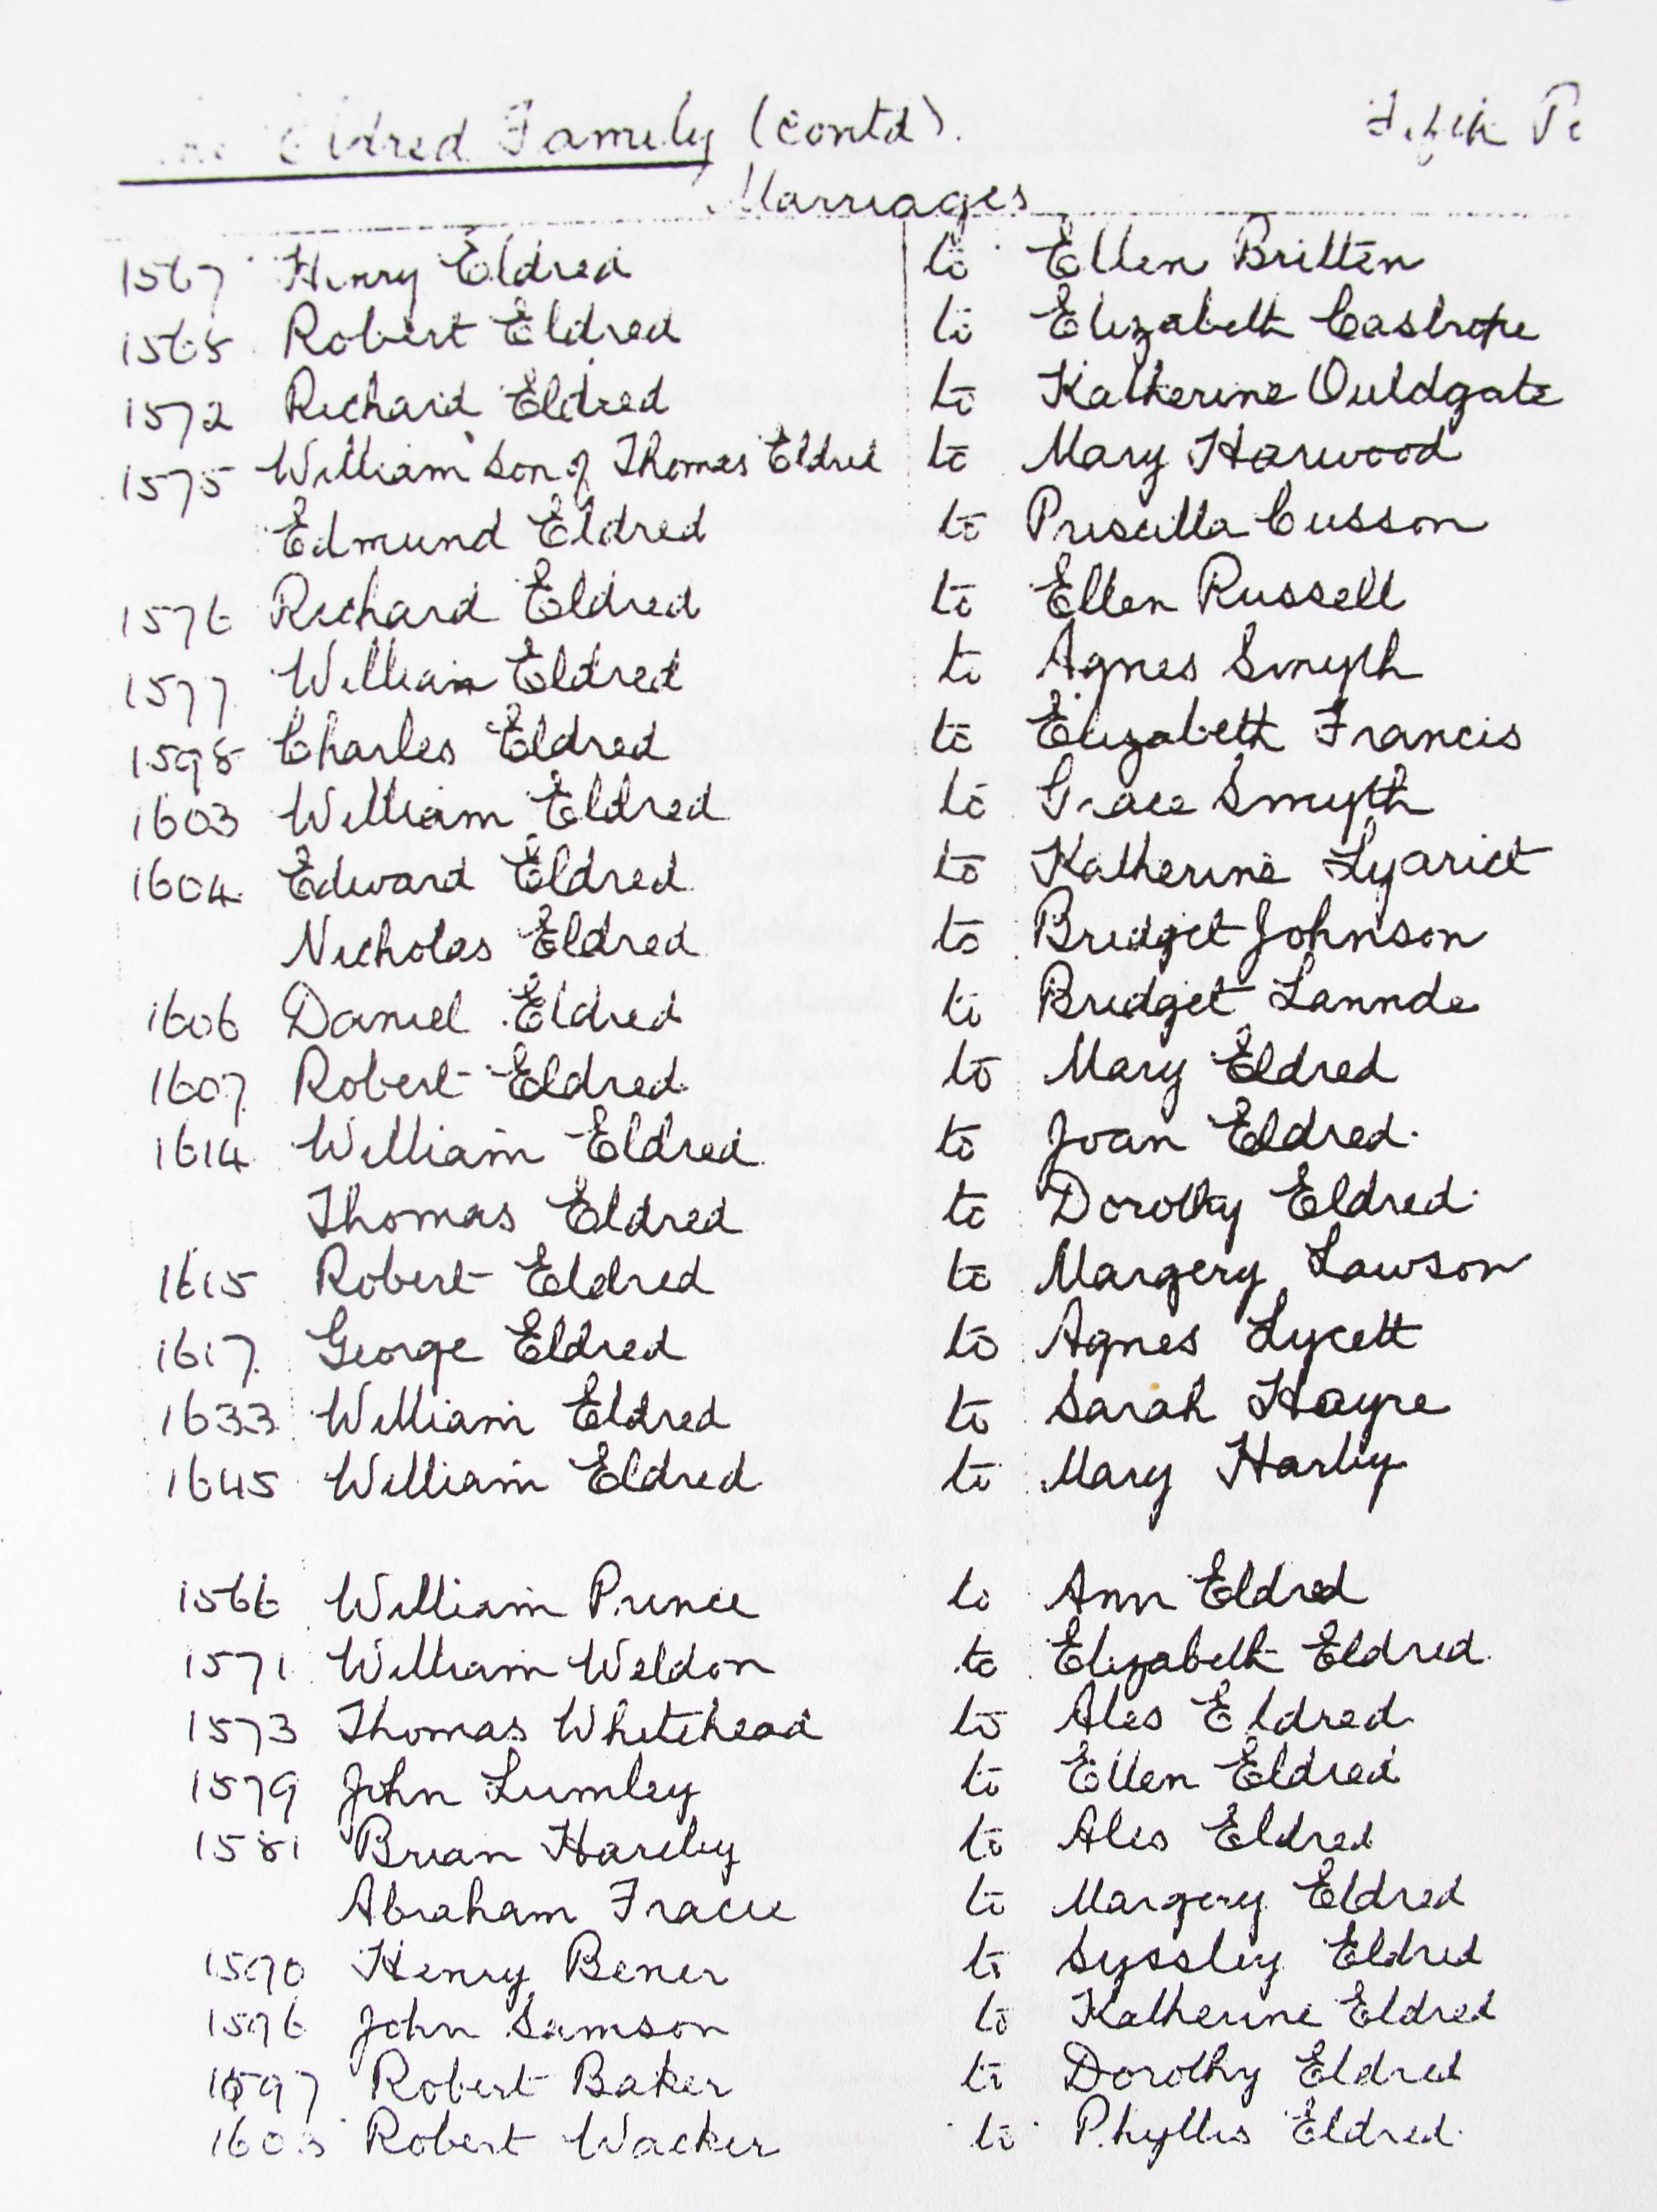 Eldred Family (contd).
Marriages
1567 Henry Eldred to Ellen Britten
1568 Robert Eldred to Elizabeth Castrope
1572 Richard Eldred to Katherine Ouldgate
1575 William Son of Thomas Eldred to Mary Harwood
Edmund Eldred to Priscilla Cusson
1576 Richard Eldred to Ellen Russell
1577 William Eldred to Agnes Smyth
1598 Charles Eldred to Elizabeth Francis
1603 William Eldred to Grace Smyth
1604 Edward Eldred to Katherine Lyarict
Nicholas Eldred to Bridget Johnson
1606 Daniel Eldred to Bridget Lannde
1607 Robert Eldred to Mary Eldred
1614 William Eldred to Joan Eldred.
Thomas Eldred to Dorothy Eldred
1615 Robert Eldred to Margery Lawson
1617 George Eldred to Agnes Lycett
1633 William Eldred to Sarah Hayre
1645 William Eldred to Mary Harby
1566 William Prince to Ann Eldred
1571 William Weldon to Elizabeth Eldred
1573 Thomas Whitehead to Ales Eldred
1579 John Lumley to Ellen Eldred
1581 Brian Hareby to Ales Eldred
Abraham Fracie to Margery Eldred
1590 Henry Bener to Syssley Eldred
1596 John Samson to Katherine Eldred
1597 Robert Baker to Dorothy Eldred
Robert Wacker to Phyllis Eldred